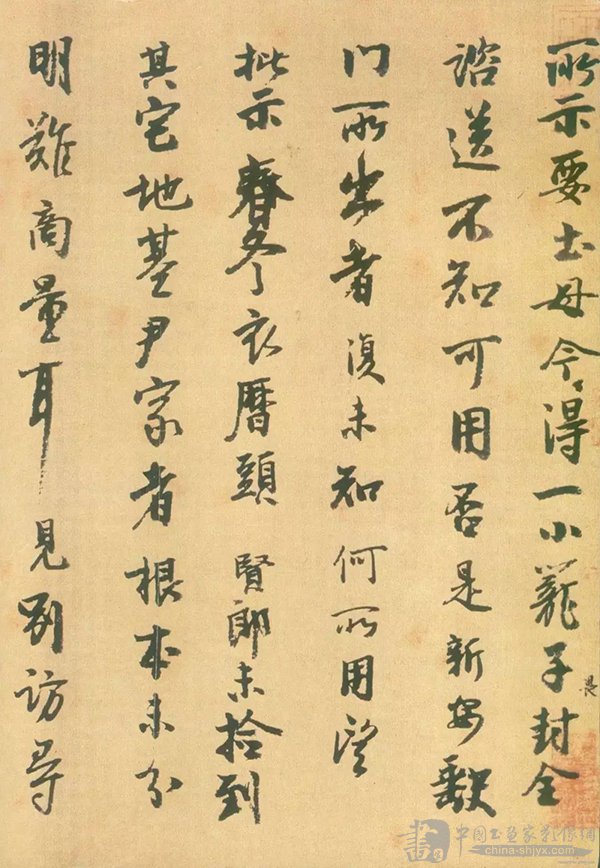 所示要土母今得一小籠子封全
諮送不知可用否是新安歙
门所出者復未知何所用望
批示春冬衣曆頭賢郎未拾到
其宅地基尹家者根本未分
明難商量耳見别訪尋
書
中国书画家影像網
china-shjyx.com